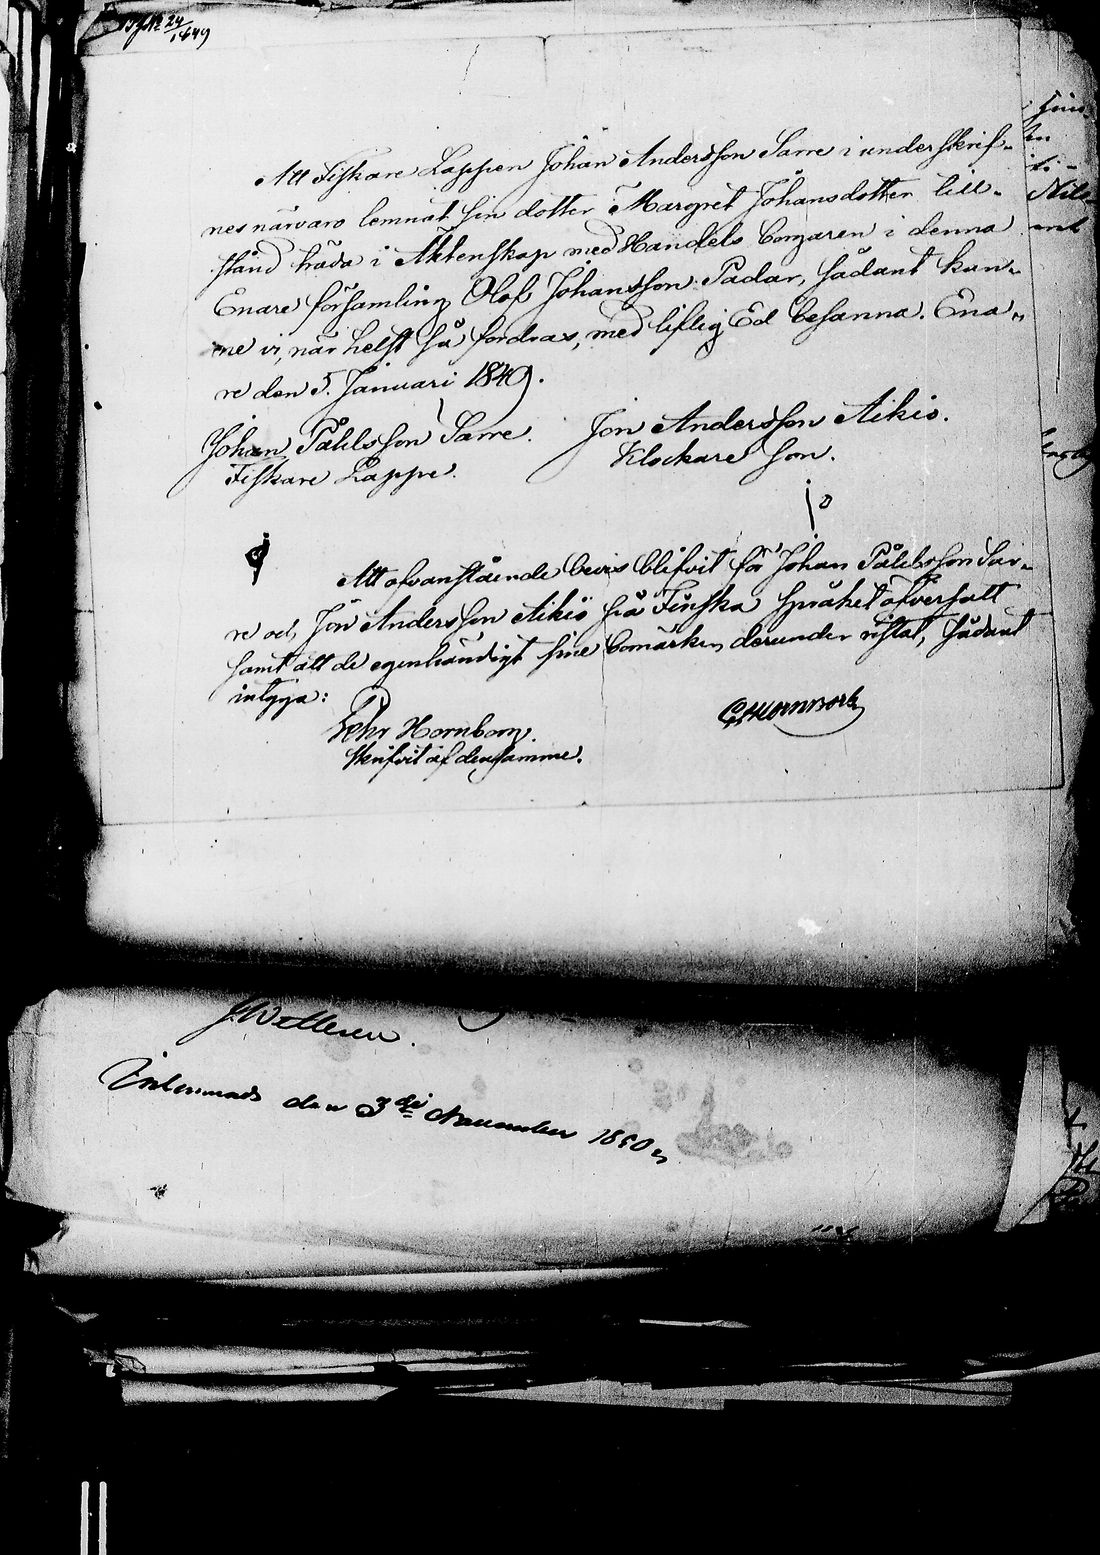 24
1849
Att Fiskare Lappen Johan Andersson Sarre i underskrif-
nes närvaro lemnat sin dotter Margret Johansdotter till-
stånd träda i Äktenskap med Handels borgaren i denna
Enare församling Olof Johansson Padar, sådant kun-
ne vi, när helst så fordras, med liflig Ed besanna. Ena-
re den 5. Januari 1849.
Johan Påhlsson Sarre. Jon Andersson Aikio.
Fiskare Lappe. Klockare son.
Att ofvanstående bevis blifvit för Johan Påhlsson Sar-
re och Jon Andersson Aikio på Finska språket öfversatt
samt att de egenhändigt sine bomärken derunder ristat, sådant
intyga:
Pehr Hornborg. 
skrifvit af densamme.
den 3die November 1850